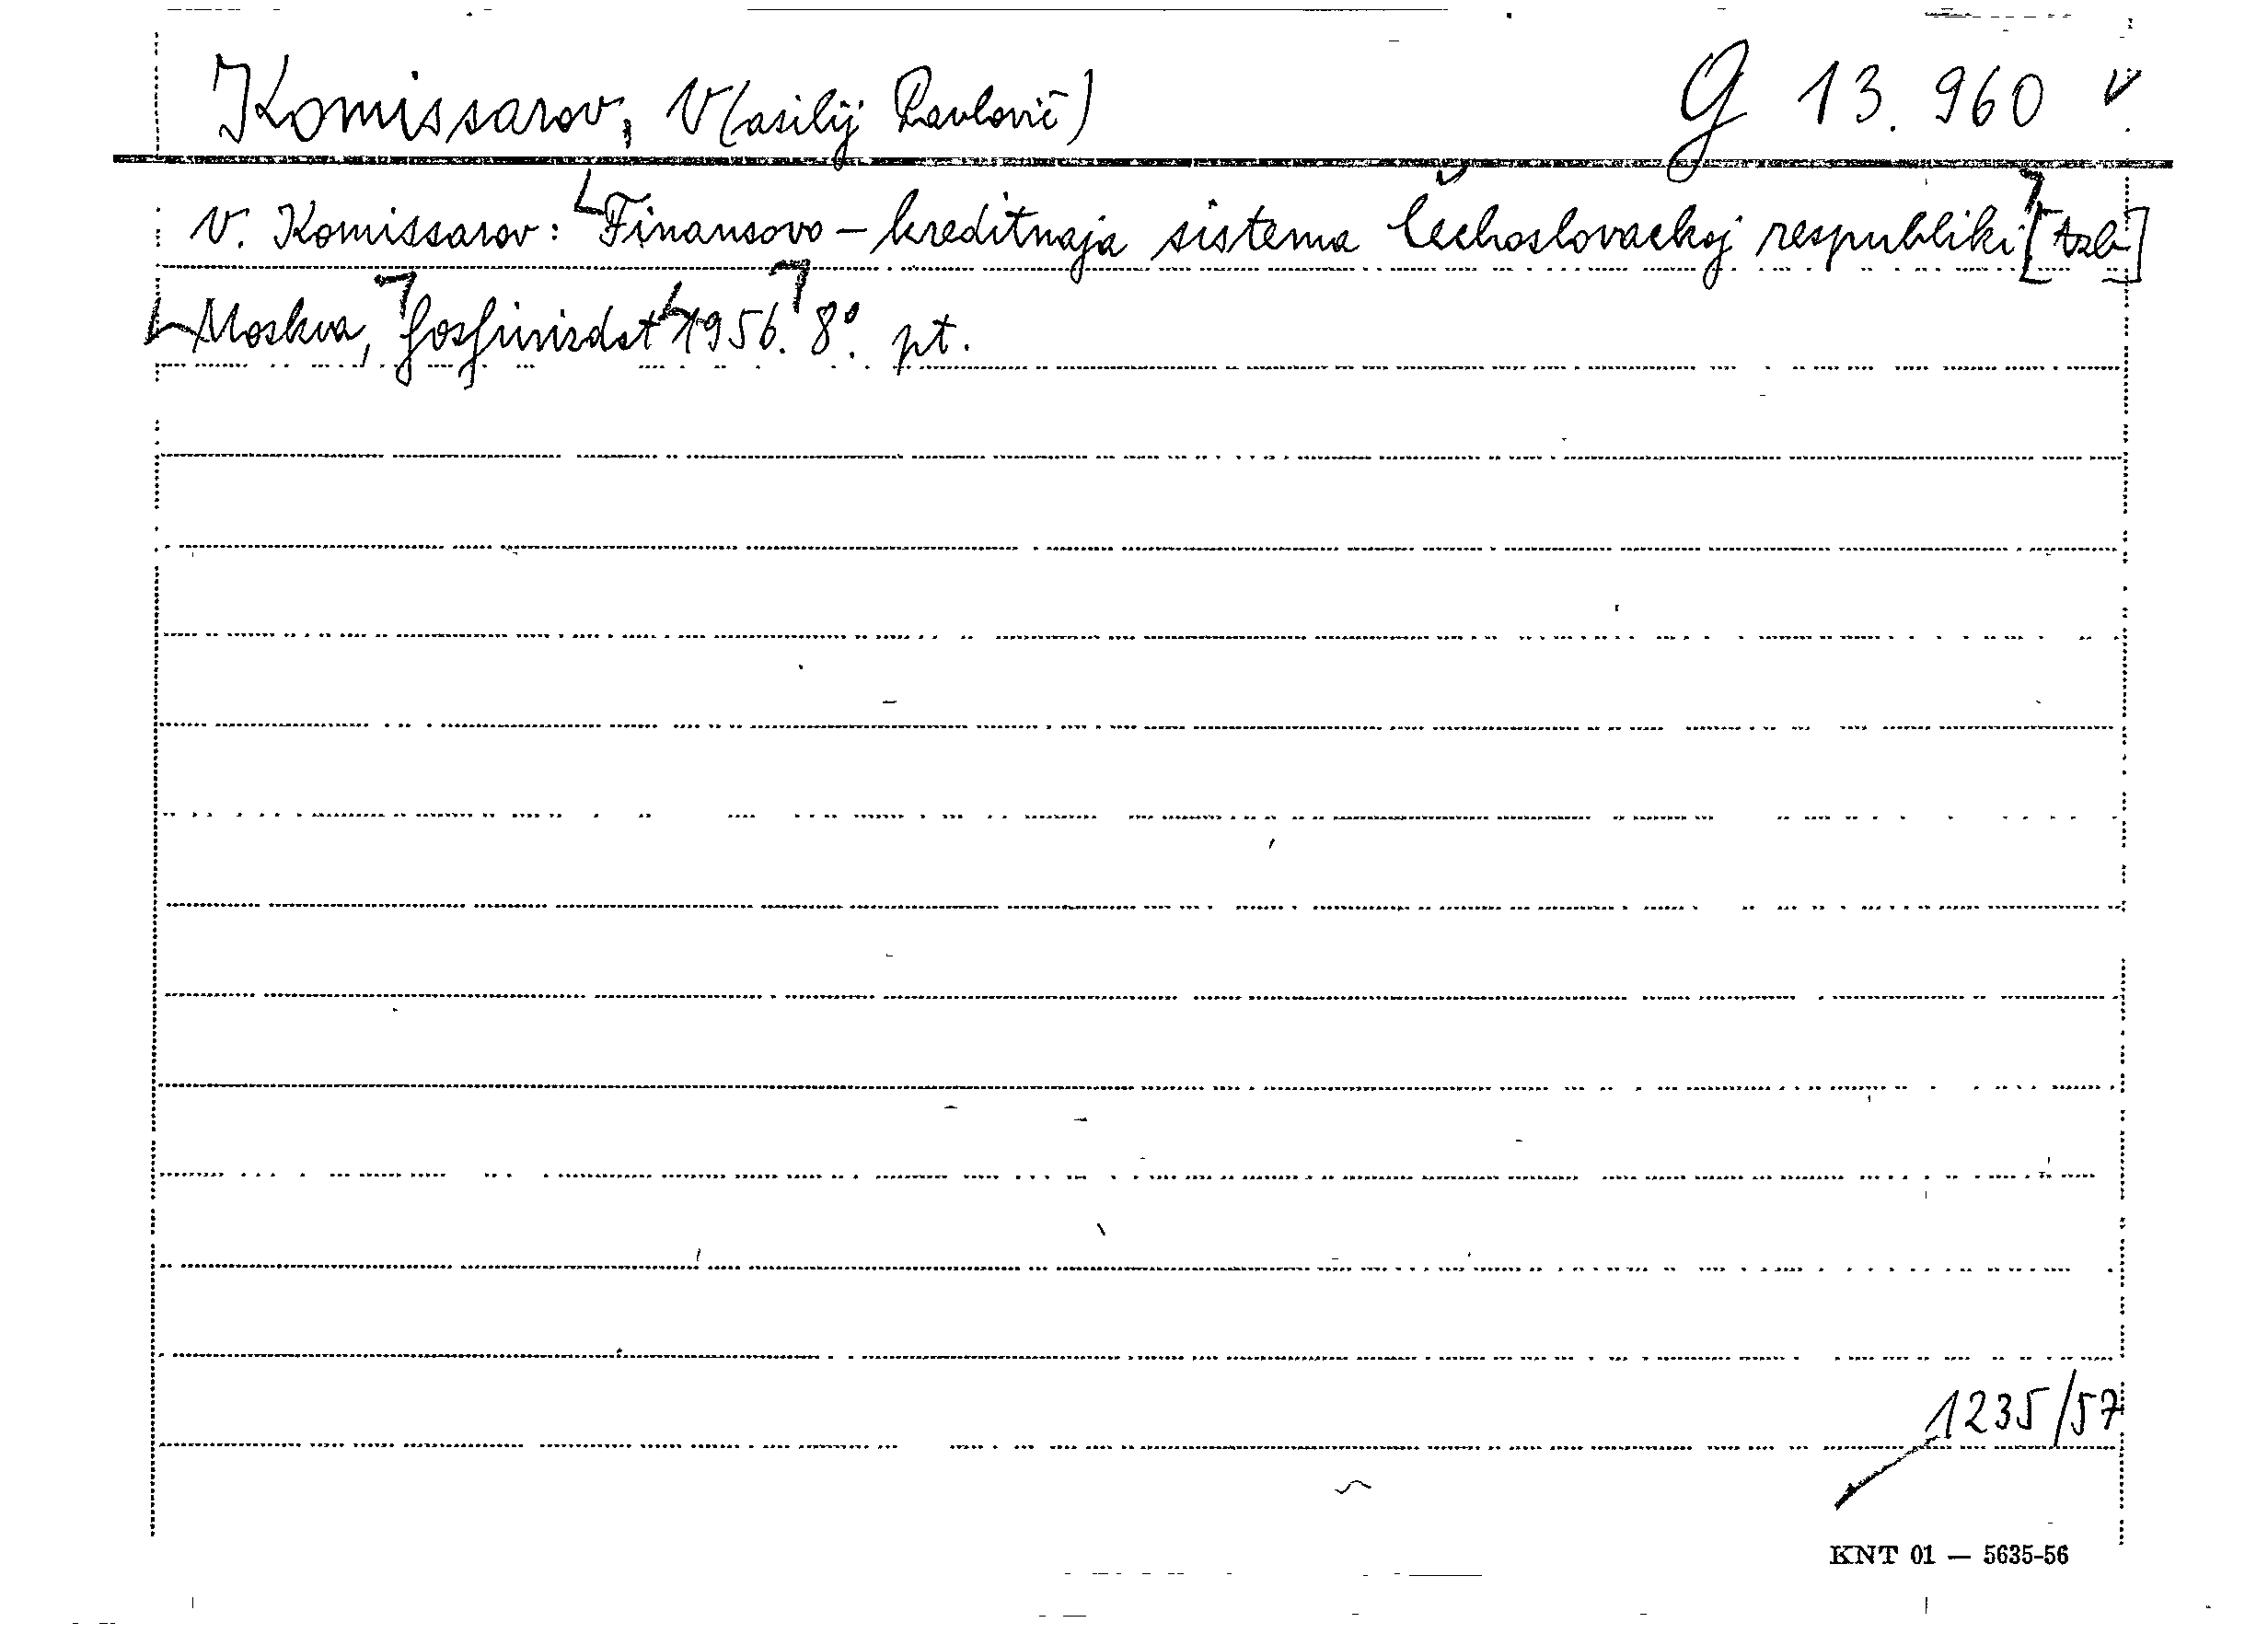 Komissarov, V(asilij Pavlovič) G 13.960 v
V. Komissarov: Finansovo-kreditnaja sistema Čechoslovackoj respubliki
Moskva, Gosfinizdat 1956. 8°. pt.
1235/57
KNT 01 — 5635-56